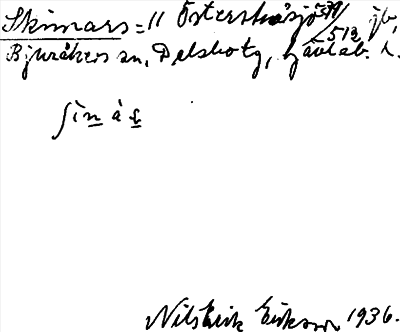 Skinnars = 11 Österstråsjö 5/2 jb,
Bjuråkers sn, Delsbo tg, Gävleb. l.
ʃìnàṣ
Nils Erik Eriksson 1936.